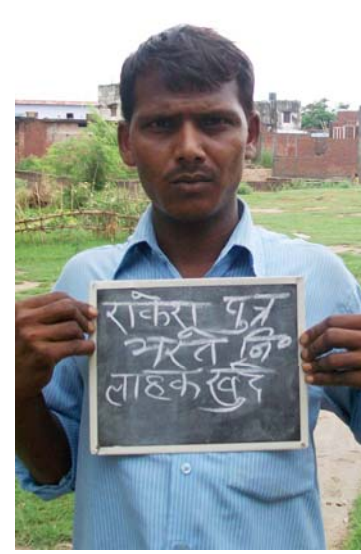 राकेश पुत्र
भरत नि०
लाहक खुर्द